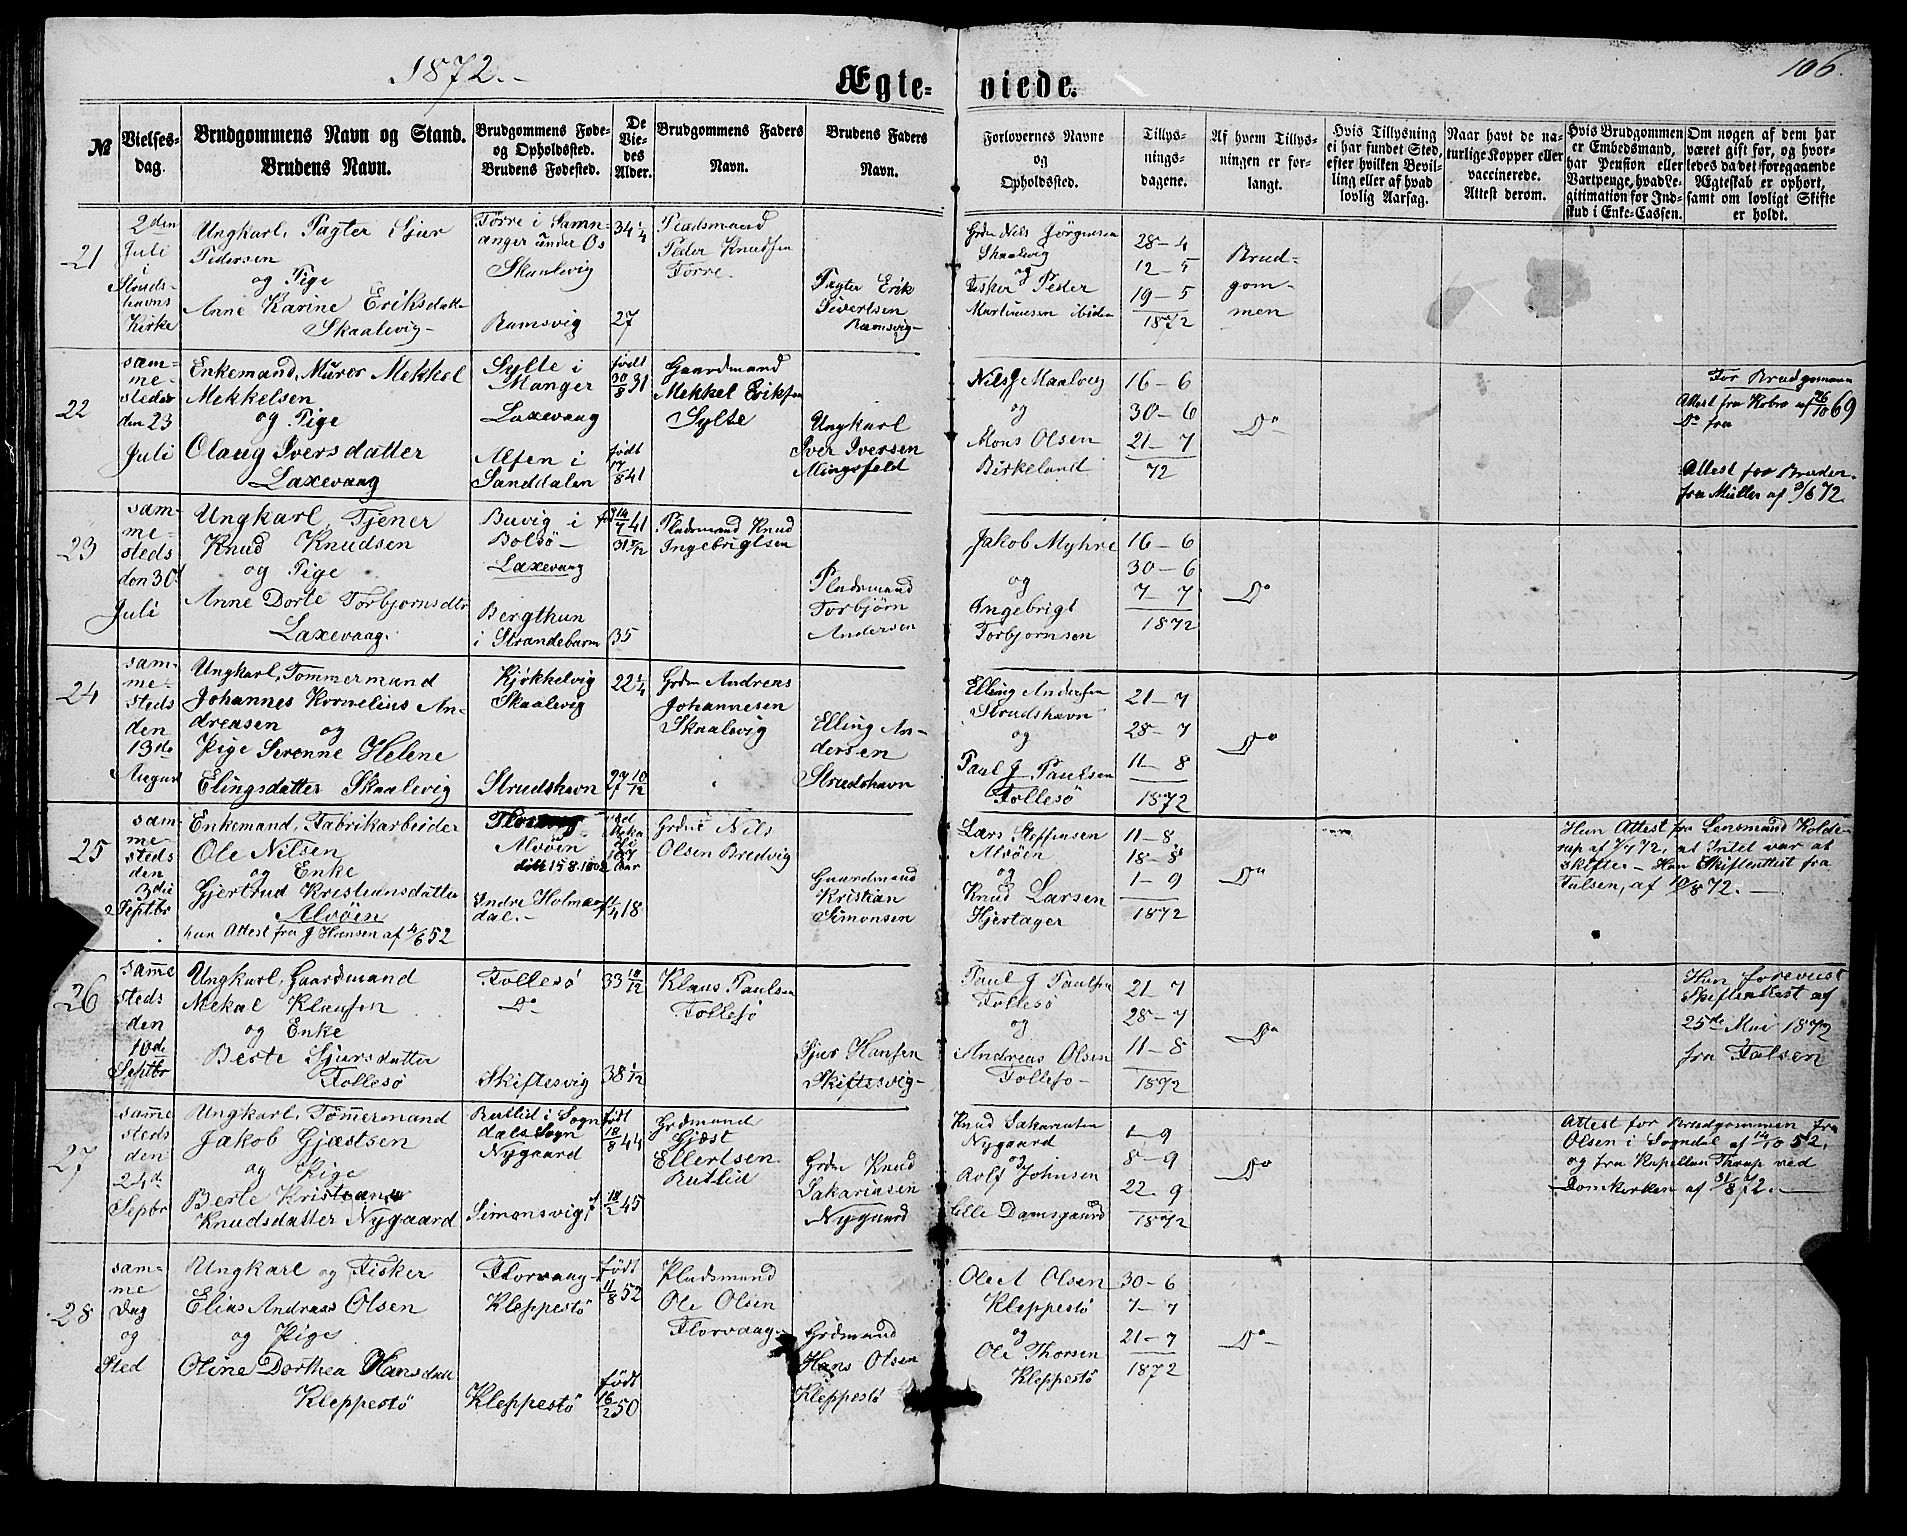 1872.
Ægteviede.
106.
№
Vielsesdag.
Brudgommens Navn og Stand. Brudens Navn.
Brudgommens Føde- og Opholdssted. Brudens Fødested.
De Viedes Alder.
Brudgommens Faders Navn.
Brudens Faders Navn.
Forlovernes Navne og Opholdssted.
Tillysningsdagene.
Af hvem Tillysningen er forlangt.
Hvis Tillysning ei har fundet Sted, efter hvilken Bevilling eller af hvad lovlig Aarsag.
Naar havt de naturlige Kopper eller vaccinerede. Attest derom.
Hvis Brudgommen er Embedsmand, har Pension eller Vartpenge, hvad Legitimation for Indskud i Enke-Cassen.
Om nogen af dem har været gift før, og hvorledes da det foregaaende Ægteskab er ophørt, samt om lovligt Skifte er holdt.
21
2den Juli i Strudshavns Kirke
Ungkarl, Pagter Sjur Pedersen
og Pige
Anne Karine Eriksdatter
Skaalevig
Tørre i Samnanger under Os
Skaalevig
Ramsvig
34 1/4
27
Pladsmand
Peder Knudsen
Tørre
Pagter Erik
Sivertsen
Ramsvig
Grdm Nils Jörgensen
Skaalevig
og
Fisker Peder
Martinusen ibiden
28-4
12-5
19-5
1872
Brudgommen
22
sammesteds
den 23
Juli
Enkemand, Murer Mekkel
Mekkelsen
og Pige
Olaug Iversdatter
Laxevaag
Sylte i
Manger
Laxevaag
Alfen i
Sanddalen
født 30/8 31
født 17/8 41
Gaardmand
Mekkel Eriksen
Sylte
Ungkarl
Iver Iversen
Nils J Maalvig
og
Mons Olsen
Birkeland
16-6
30-6
21-7
72
Do
For Brudgommen
Attest fra Kobro af 26/10 69
Do fra
Attest for Bruden
fra Müller af 3/6 72.
23
sammesteds
den 30te
Juli
Ungkarl, Tjener
Knud Knudsen
og Pige
Anne Dorte Torbjørnsdtr
Laxevaag
Buvig i
Bolsö
Laxevaag
Bergthun
i Strandebarm
14/7 41
35
Pladsmand Knud
Ingebrigtsen
Pladsmand
Torbjørn
Andersen
Jakob Myhre
og
Ingebrigt
Torbjørnsen
16-6
30-6
7-7
1872
Do
24
sammesteds
den
13de
August
Ungkarl, Tømmermand
Johannes Kornelius Andreasen
og
Pige Serenne Helene
Elingsdatter Skaalevig
Kjøkkelvig
Skaalevig
Strudshavn
22 1/4
27 10/12
Grdm Andreas
Johannesen
Skaalevig
Elling Andersen
Strudshavn
Elling Andersen
Strudshavn
og
Paul J Paulsen
Follesö
21-7
28-7
11-8
1872
Do
25
sammesteds
den
3die
Septbr
Enkemand, Fabrikarbeider
Ole Nilsen
og Enke
Gjertrud Kristiansdatter
Alvöen
hun Attest fra J Hansen af 4/6 52
Alvöen
Indre Holmedal.
1/4 18
Grdmd Nils
Olsen Bredvig
Gaardmand
Kristian
Simonsen
Lars Steffensen
Alvöen
og
Knud Larsen
Hjertager
11-8
18-8
1-9
1872
Do
Hun Attest fra Lensmand Kolderup af 2/7 72, at Intet var at
skifte - Han Skifteattest fra
Falsen, af 10/8 72.
26
samme
steds
den
10de
Septbr
Ungkarl, Gaardmand
Mekal Klausen
og Enke
Berte Sjursdatter
Follesö
Follesö
Do
Skiftesvig
33 10/12
38 1/12
Klaus Paulsen
Follesö
Sjur Hansen
Skiftesvig
Paul J Paulsen
Follesö
og
Andreas Olsen
Follesø
21-7
28-7
11-8
1872
Do
Hun forevist
Skifteattest af
25de Mai 1872
fra Falsen
27
samme
steds
den
24de
Sepbr
Ungkarl, Tømmermand
Jakob Gjæstsen
og Pige
Berte Kristianne
Knudsdatter Nygaard
Rutlid i Sogndals Sogn
Nygaard
Simonsvig
født 18/8 44
f 10/2 45
Grdmand
Gjæst
Ellertsen
Rutlid
Grdm Knud
Sakariasen
Nygaard
Knud Sakariasen
Nygaard
og
Rolf Johnsen
Lille Damsgaard
1-9
8-9
22-9
1872
Do
Attest for Brudgommen fra
Olsen i Sogndal af 14/10 52,
og fra Kapellan Thrap ved
Domkirken af 31/8 72.
28
samme
Dag
og
Sted
Ungkarl og Fisker
Elias Andreas Olsen
og Pige
Oline Dorthea Hansdatt
Kleppestö
Florvaag
Kleppestö
Kleppestö
født 11/8 52
født 16/2 50
Pladsmand
Ole Olsen
Florvaag
Grdmand
Hans Olsen
Kleppestö
Ole A Olsen
Kleppestö
og
Ole Thorsen
Kleppestö
30-6
7-7
21-7
1872
Do